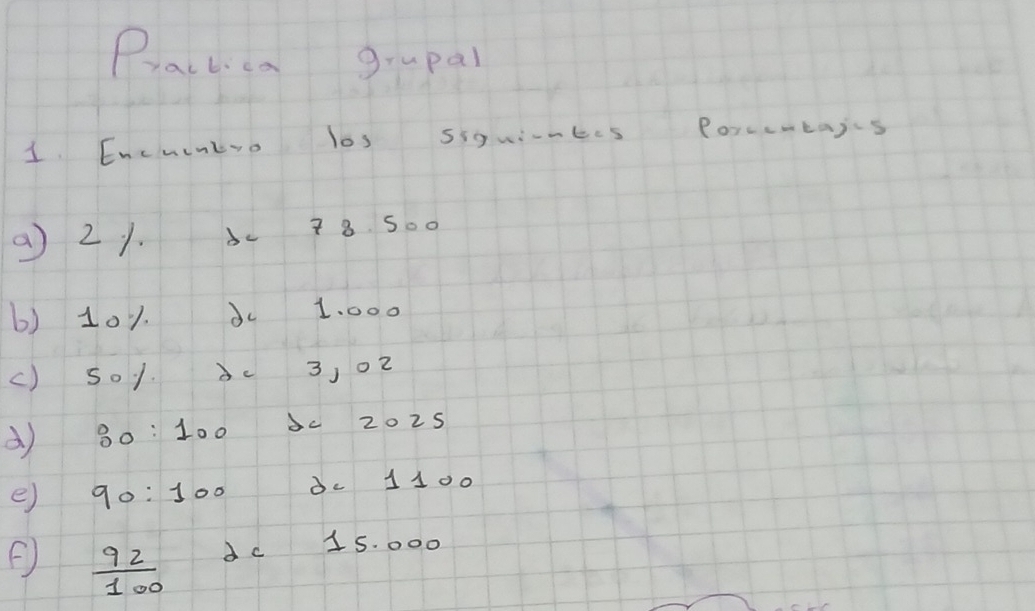 Practica grupal
1. Encuentro los siguientes Porcentajes
a) 2 %. de 78.500
b) 10%. de 1.000
c) 50%. de 3,02
d) 80:100 de 2025
e) 90:100 de 1100
F) 92/100 de 15.000